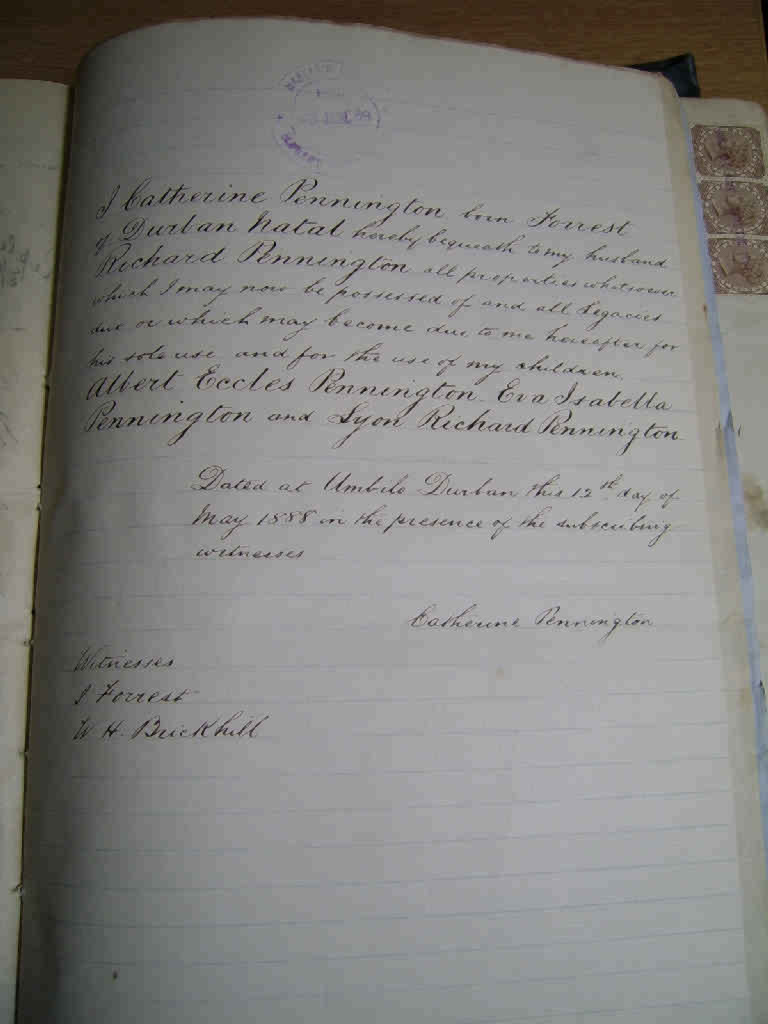 I Catherine Pennington born Forrest
of Durban Natal hereby bequeath to my husband
Richard Pennington all properties whatsoever
which I may now be possessed of and all Legacies
due or which may become due to me hereafter for
his sole use and for the use of my children.
Albert Eccles Pennington Eva Isabella
Pennington and Lyon Richard Pennington
Dated at Umbilo Durban this 12th day of
May 1888 in the presence of the subscribing
witnesses
Catherine Pennington
Witnesses
J Forrest
W H. Brickhill